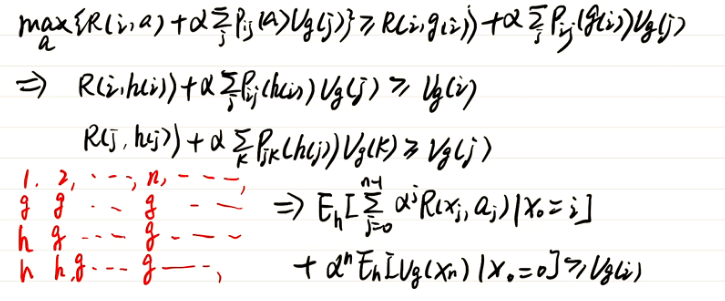 max_a {R(i,a) + α Σ_j P_ij(a) V_g(j)} ≥ R(i,g(i)) + α Σ_j P_ij(g(i)) V_g(j)
⇒ R(i,h(i)) + α Σ_j P_ij(h(i)) V_g(j) ≥ V_g(i)
R(j,h(j)) + α Σ_k P_jk(h(j)) V_g(k) ≥ V_g(j)
1. 2, ---, n, ---,
g g -- g ---
⇒ E_h[Σ_{j=0}^{n-1} α^j R(x_j, a_j) | x_0 = i]
h g --- g ----
h h,g --- g ---,
+ α^n E_h[V_g(x_n) | x_0 = 0] ≥ V_g(i)